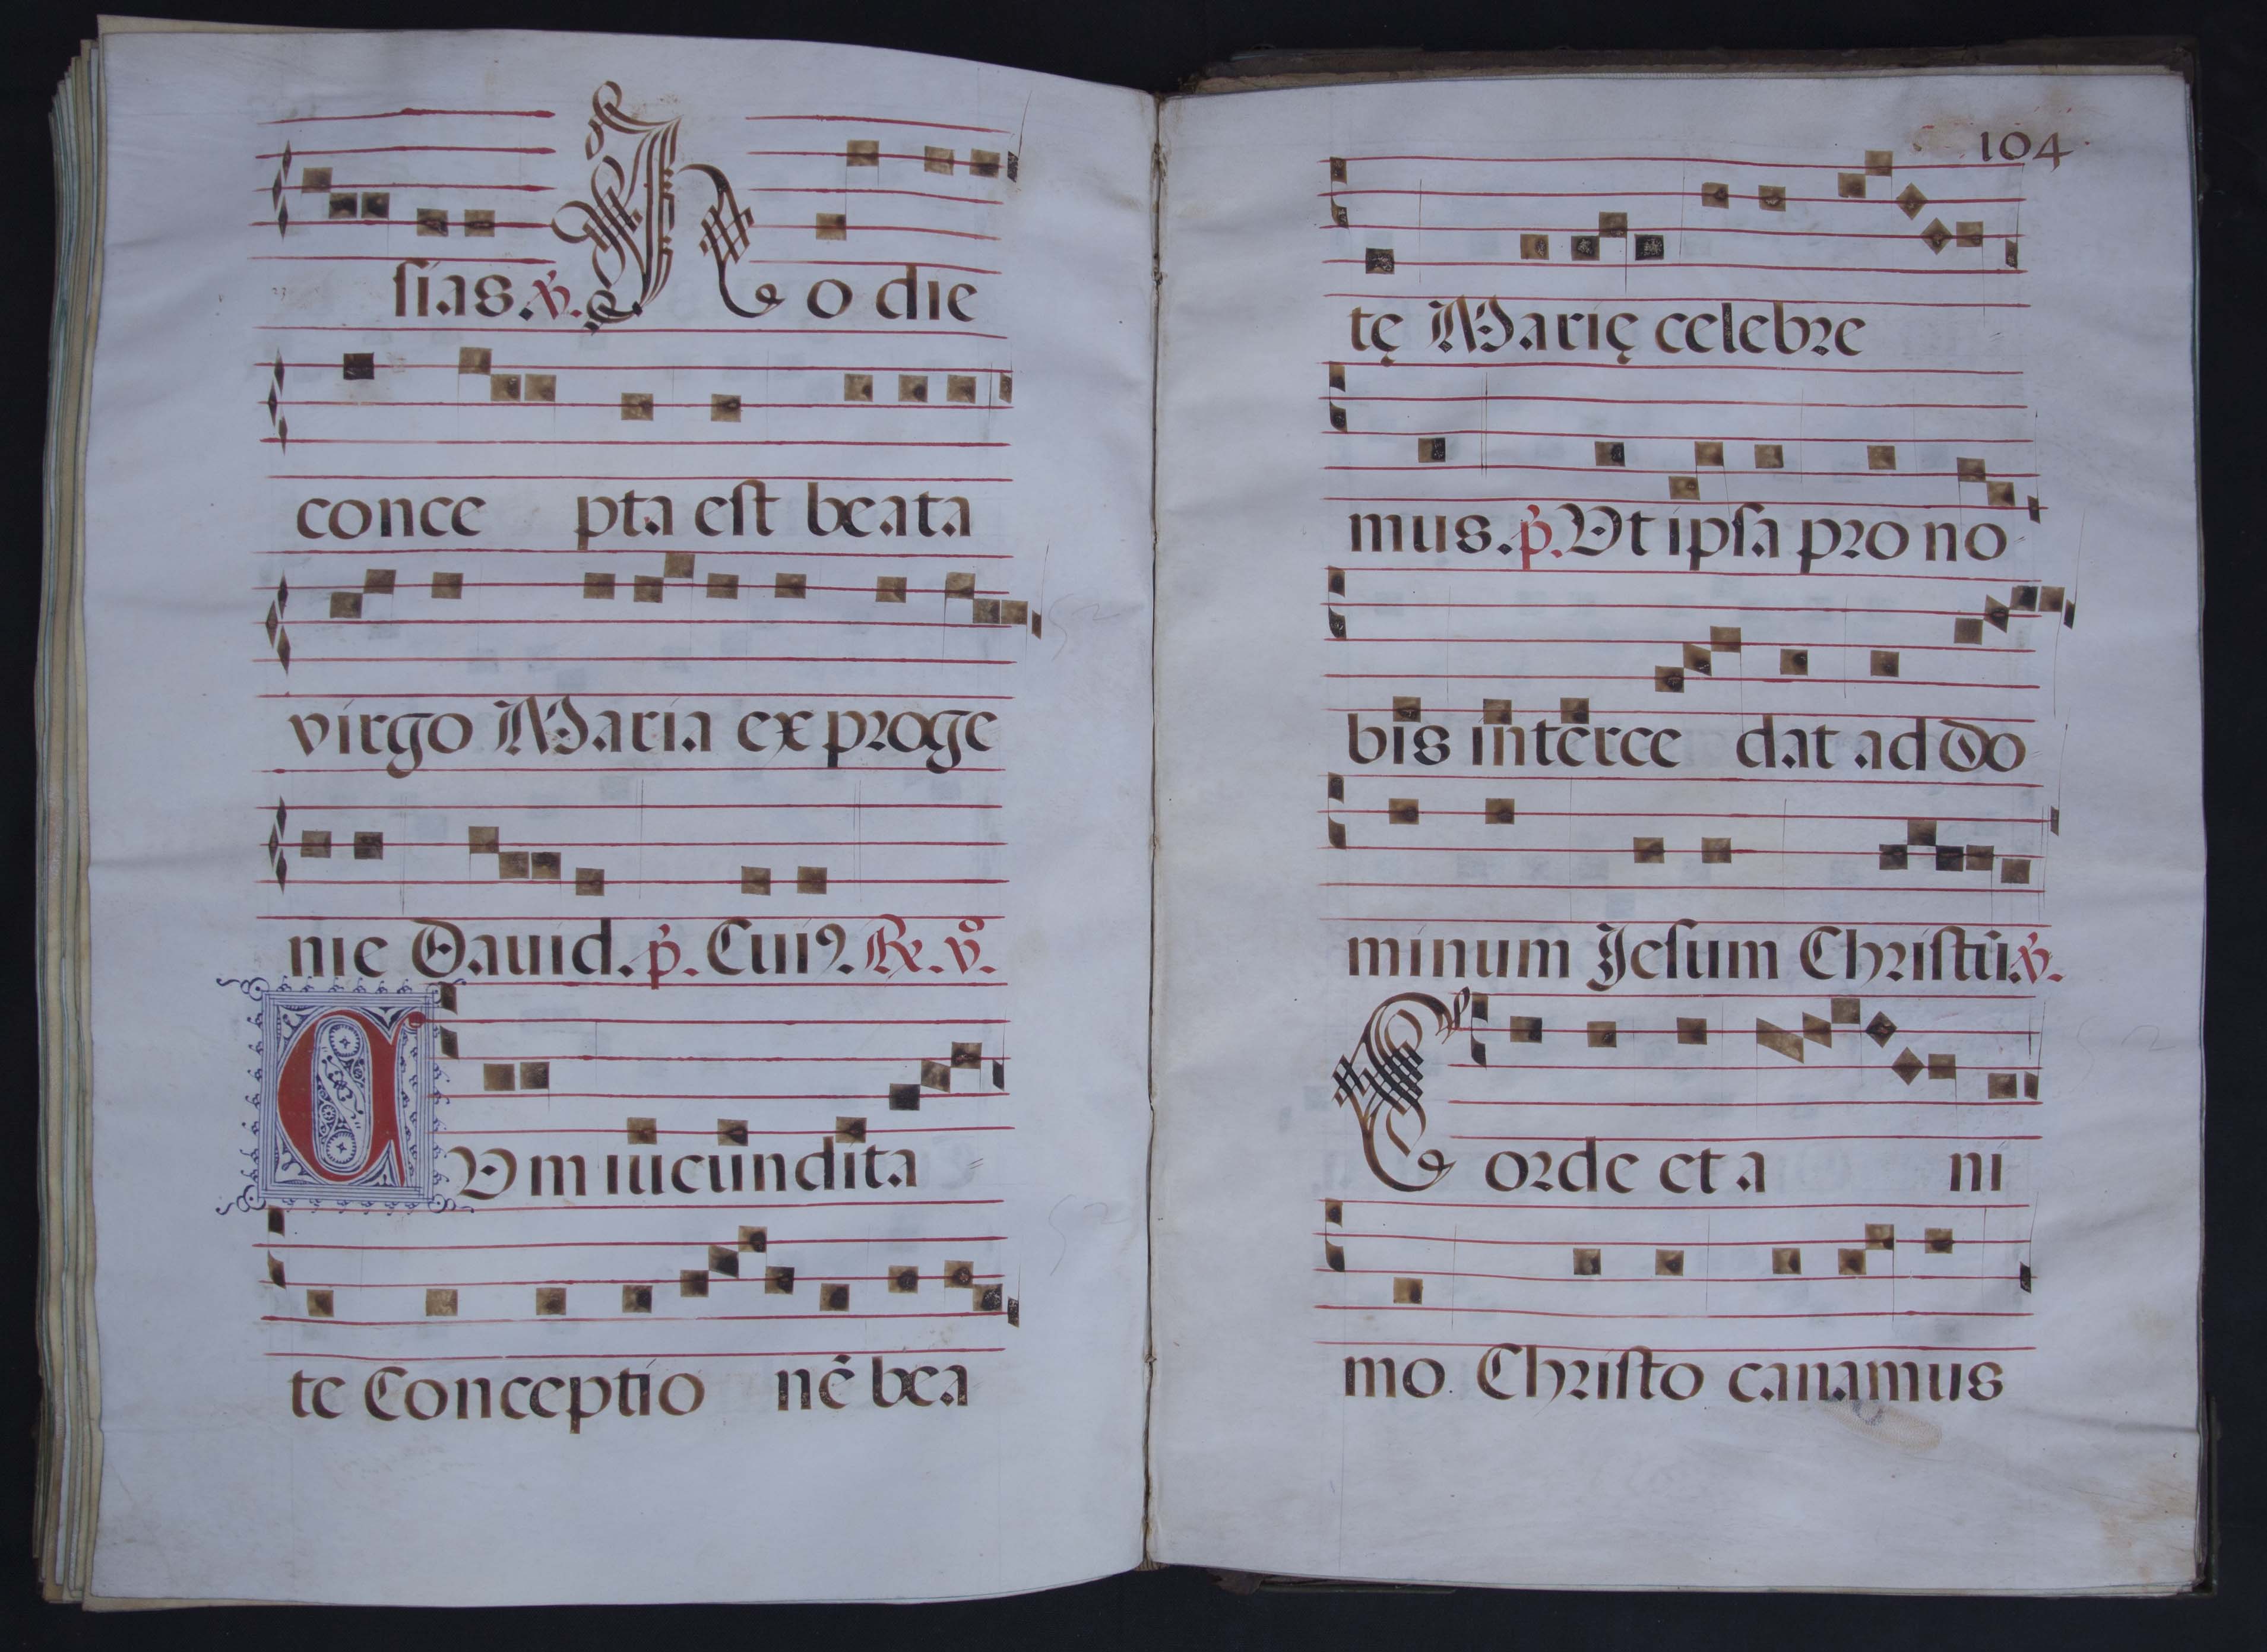 sias. ℣. Ho die
conce pta est beata
virgo Maria ex proge
nie Dauid. p̃. Cui9. ℟. vº.
CVm iucundita
te Conceptio nẽ bea
104
tę Marię celebre
mus. p̃. Vt ipsa pro no
bis interce dat ad Do
minum Jesum Christũ. ℣.
Corde et a ni
mo Christo canamus